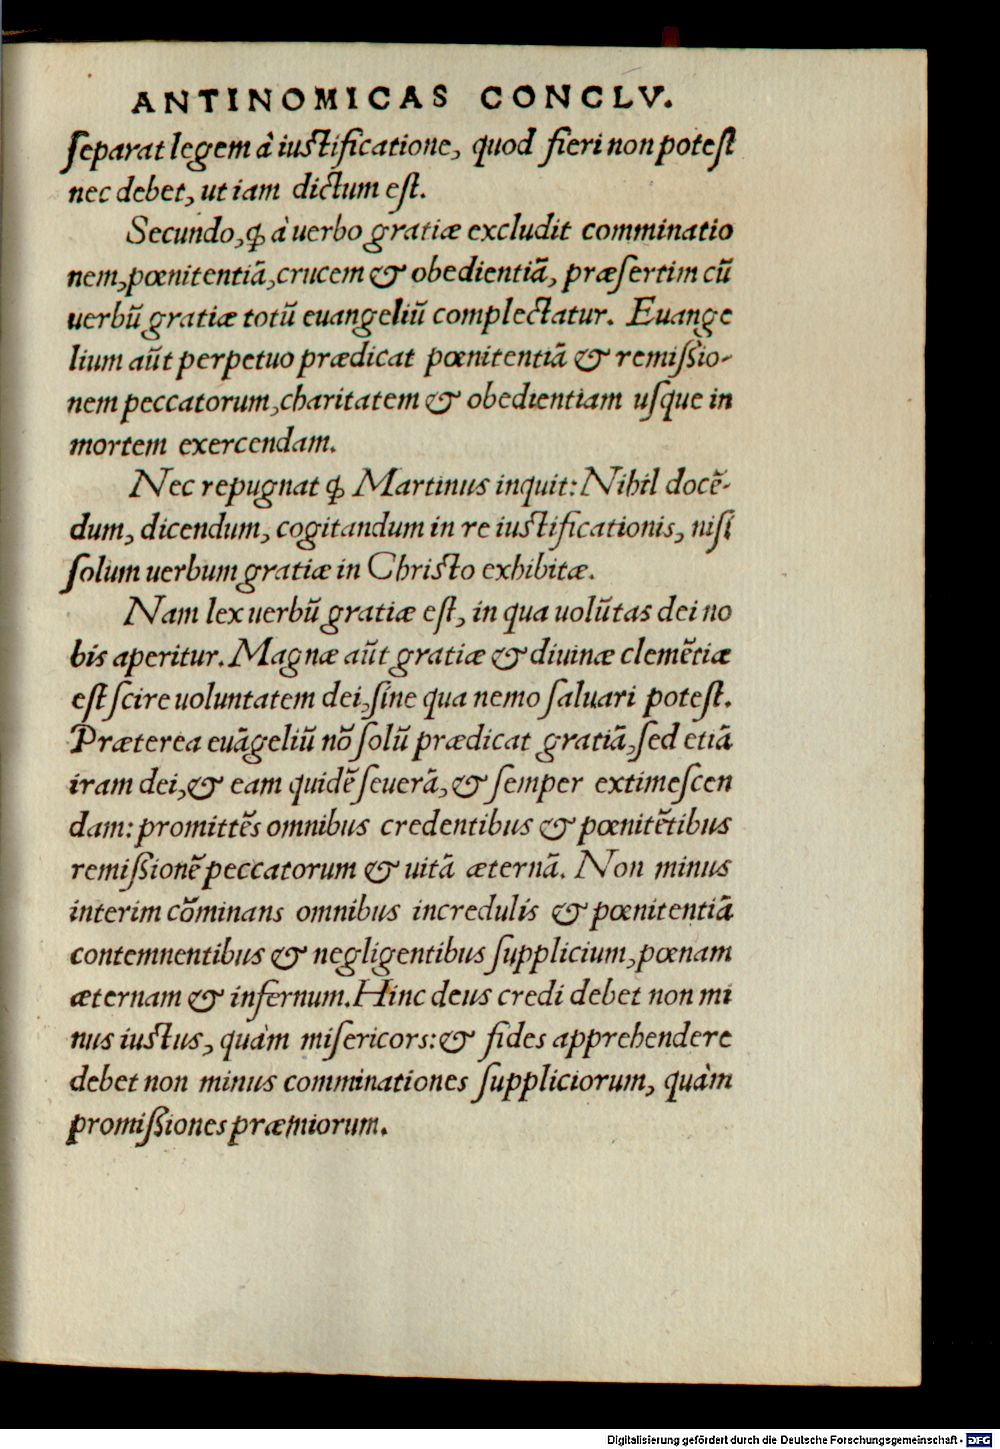 ANTINOMICAS CONCLV.
ſeparat legem à iuſtificatione, quod fieri non poteſt
nec debet, ut iam dictum eſt.
Secundo, ꝙ à uerbo gratiæ excludit comminatio
nem, pœnitentiã, crucem & obedientiã, præſertim cũ
uerbũ gratiæ totũ euangeliũ complectatur. Euange
lium aũt perpetuo prædicat pœnitentiã & remiſsio-
nem peccatorum, charitatem & obedientiam uſque in
mortem exercendam.
Nec repugnat ꝙ Martinus inquit: Nihil docẽ-
dum, dicendum, cogitandum in re iuſtificationis, niſi
ſolum uerbum gratiæ in Chriſto exhibitæ.
Nam lex uerbũ gratiæ eſt, in qua uolũtas dei no
bis aperitur. Magnæ aũt gratiæ & diuinæ clemẽtiæ
eſt ſcire uoluntatem dei, ſine qua nemo ſaluari poteſt.
Præterea euãgeliũ nõ ſolũ prædicat gratiã, ſed etiã
iram dei, & eam quidẽ ſeuerã, & ſemper extimeſcen
dam: promittẽs omnibus credentibus & pœnitẽtibus
remiſsionẽ peccatorum & uitã æternã. Non minus
interim cõminans omnibus incredulis & pœnitentiã
contemnentibus & negligentibus ſupplicium, pœnam
æternam & infernum. Hinc deus credi debet non mi
nus iuſtus, quàm miſericors: & fides apprehendere
debet non minus comminationes ſuppliciorum, quàm
promiſsiones præmiorum.
Digitalisierung gefördert durch die Deutsche Forschungsgemeinschaft - DFG